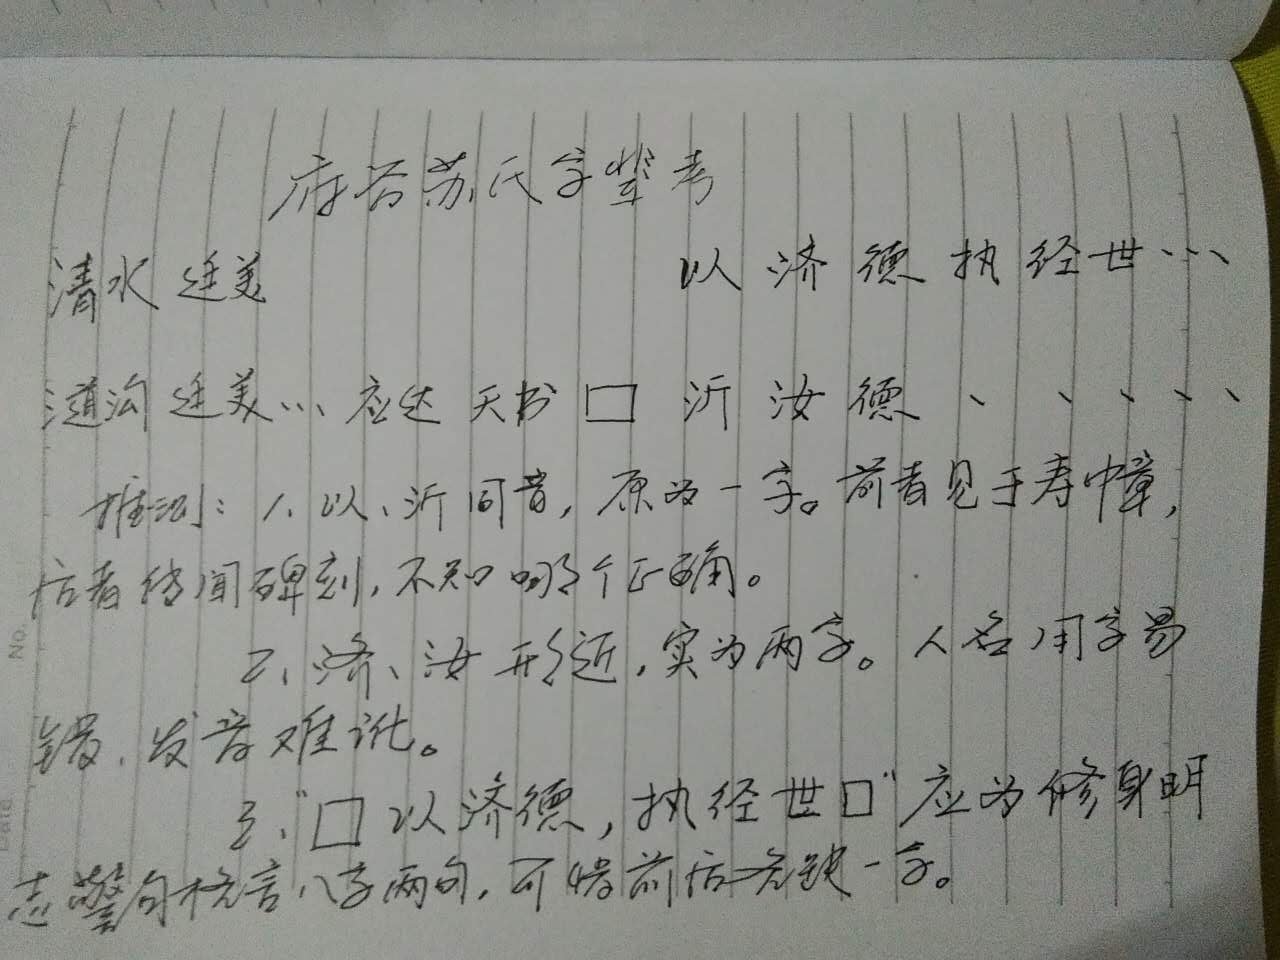 府谷苏氏字辈考
清水 廷美 以济德执经世…
道沟 廷美… 应达 天书 □ 沂汝德、、、、、
推测：1、以、沂同音，原为一字。前者见于寿幛，
后者传闻碑刻，不知哪个正确。
2、济、汝形近，实为两字。人名用字易
错，发音难讹。
3、“□以济德，执经世□”应为修身明
志警句格言八字两句，可惜前后各缺一字。
No.
Date